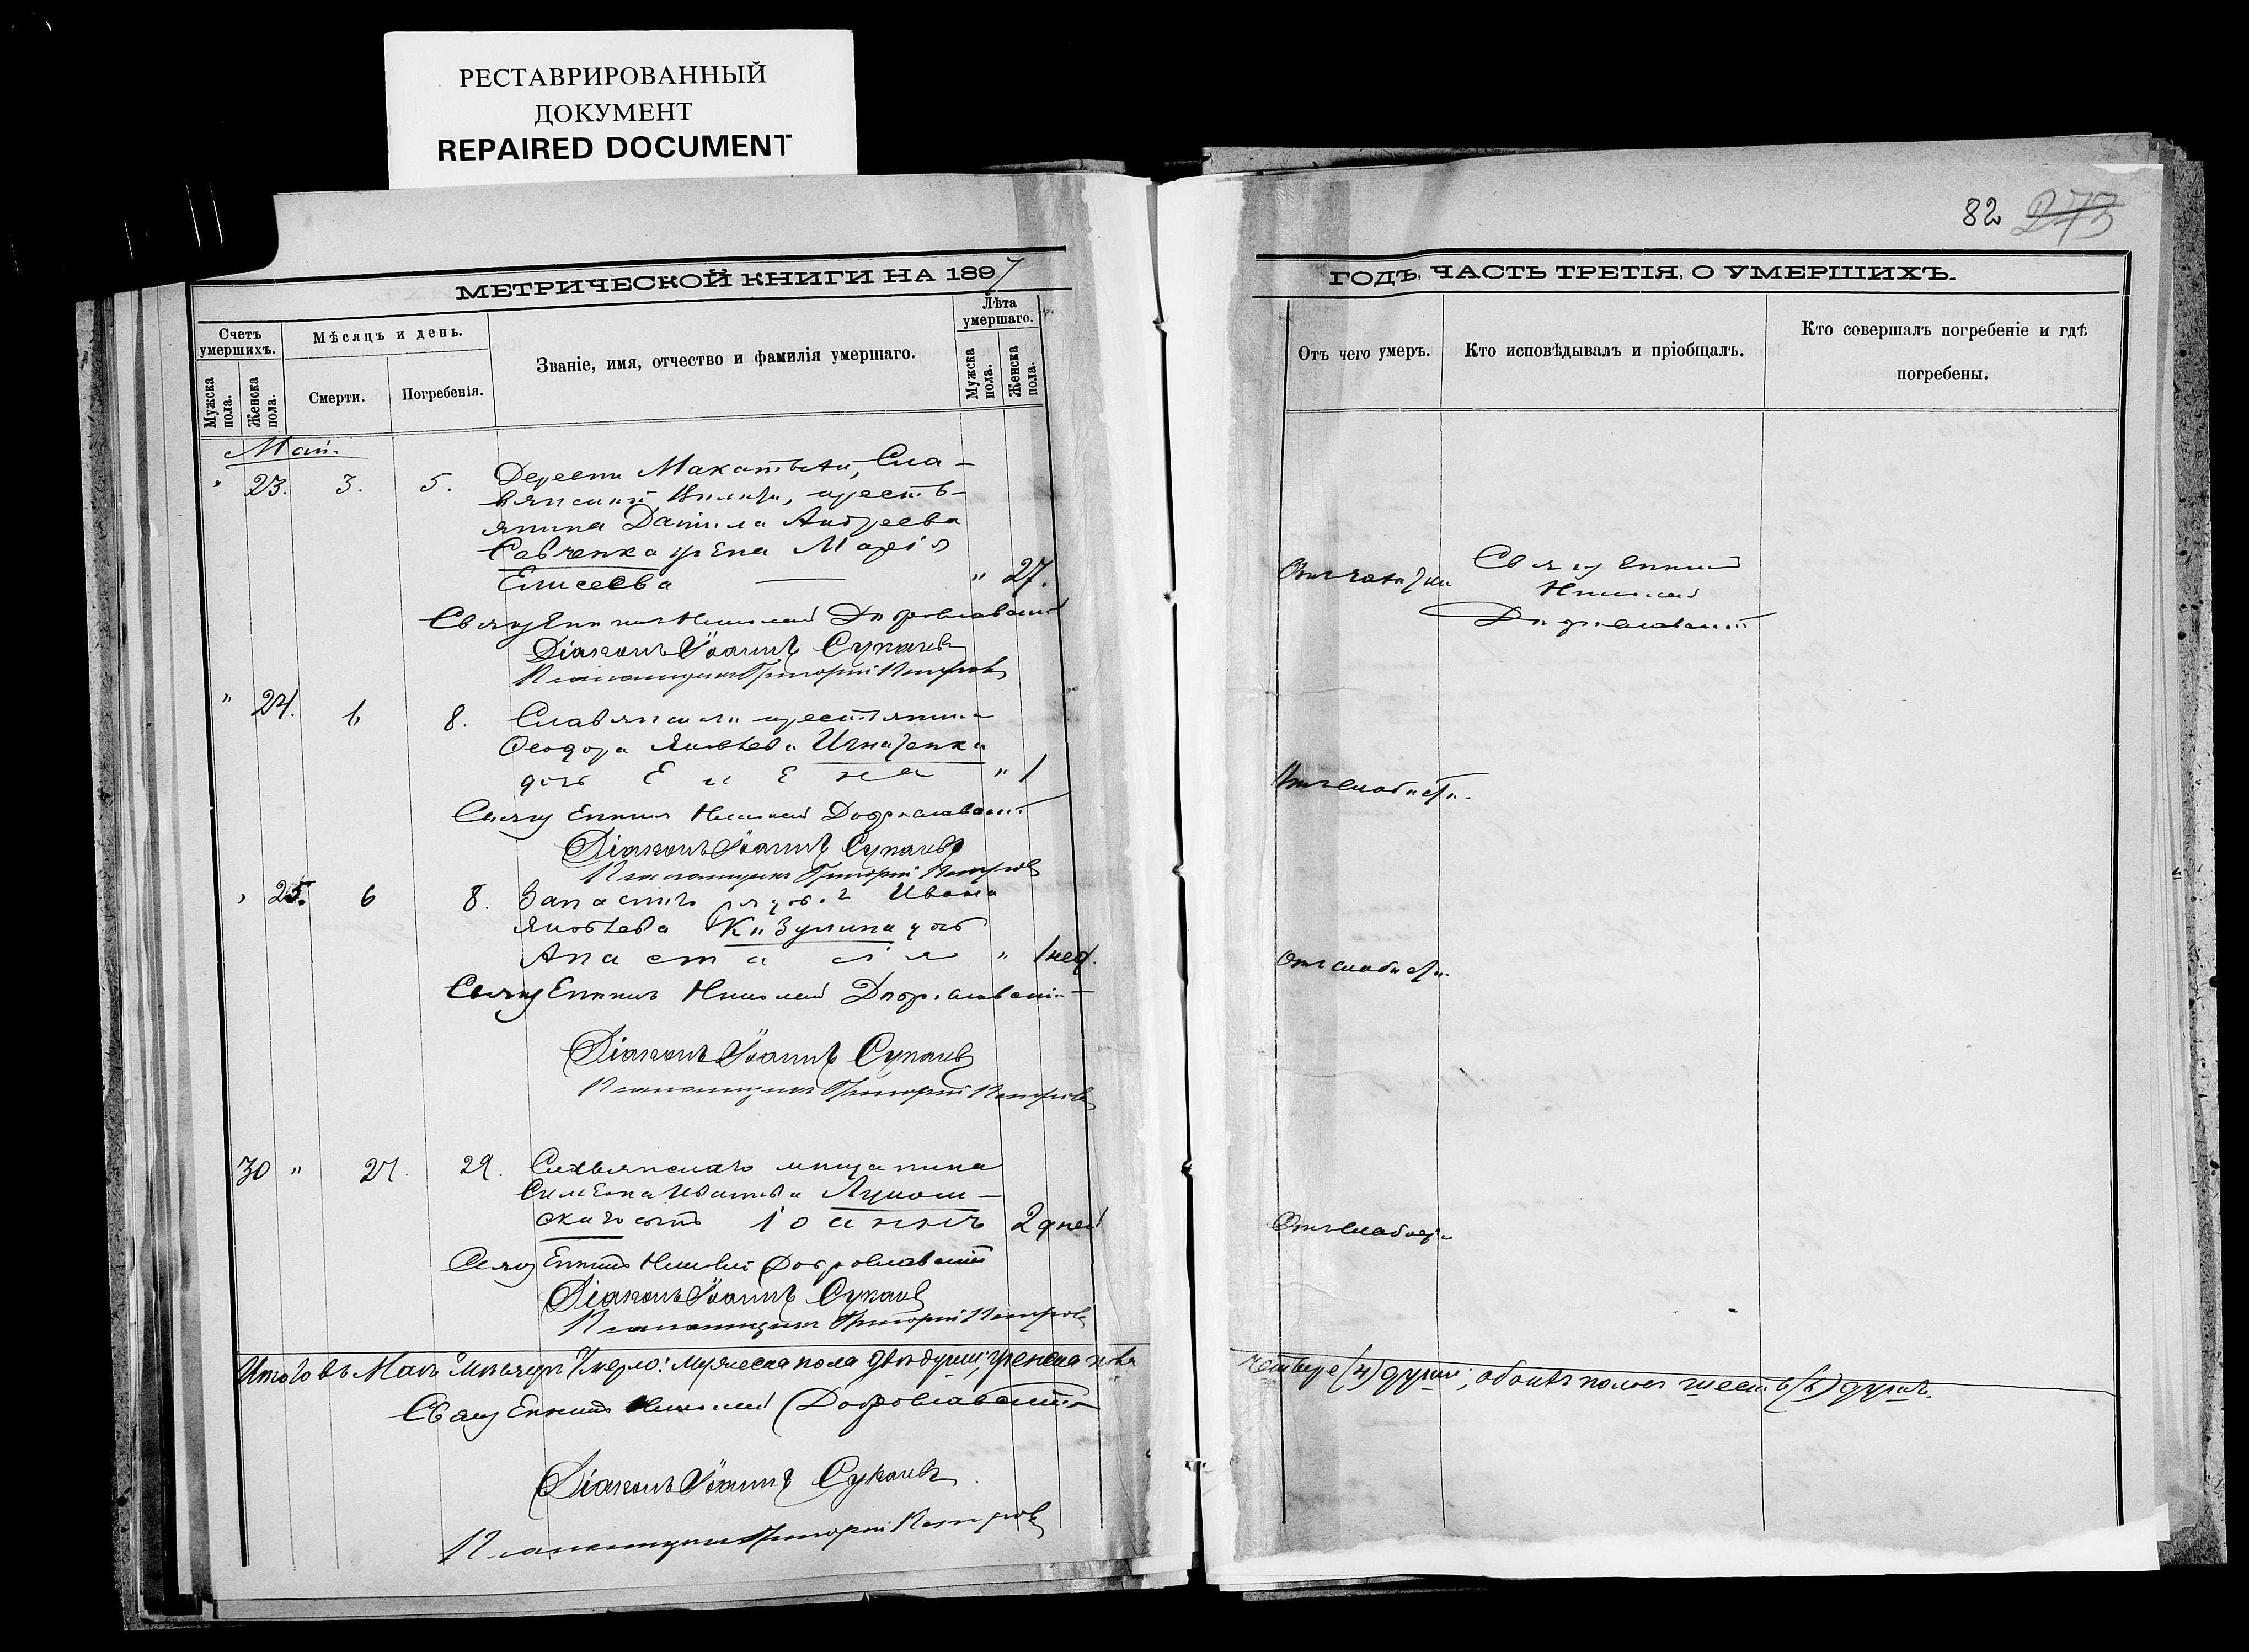 РЕСТАВРИРОВАННЫЙ
ДОКУМЕНТ
REPAIRED DOCUMENT
82 273
МЕТРИЧЕСКОЙ КНИГИ НА 1897
ГОДЪ, ЧАСТЬ ТРЕТІЯ, О УМЕРШИХЪ.
Счетъ умершихъ.
Мужска пола.
Женска пола.
Мѣсяцъ и день.
Смерти.
Погребенія.
Званіе, имя, отчество и фамилія умершаго.
Лѣта умершаго.
Мужска пола.
Женска пола.
Отъ чего умеръ.
Кто исповѣдывалъ и пріобщалъ.
Кто совершалъ погребеніе и гдѣ
погребены.
Май.
" 23. 3. 5. Сла-
вянской крестъ-
янина Даніила Андреева
Савченка жена Марія
Елисеева " 27.
Отъ чахотки
Священникъ
Николай
Доброславскій
Священникъ Николай Доброславскій
Діаконъ Іоаннъ Сукачевъ
Псаломщикъ Григорій Петровъ
" 24. 6 8. Славянска крестьянина
Ѳеодора Яковлева Игнатенка
дочь Елена " 1
Отъ слабости.
Священникъ Николай Доброславскій
Діаконъ Іоаннъ Сукачевъ
Псаломщикъ Григорій Петровъ
" 25. 6 8. Ивана
Яковлева дочь
Анастасія " 1 нед.
Отъ слабости.
Священникъ Николай Доброславскій
Діаконъ Іоаннъ Сукачевъ
Псаломщикъ Григорій Петровъ
30 " 27. 29. Славянскаго мѣщанина
Симеона
скаго сынъ Іоаннъ 2 дней
Отъ слабости
Священникъ Николай Доброславскій
Діаконъ Іоаннъ Сукачевъ
Псаломщикъ Григорій Петровъ
Итого въ Маѣ мѣсяцѣ умерло: мужеска пола двѣ души, женска пола
четыре (4) души, обоихъ половъ шесть (6) душъ.
Священникъ Николай Доброславскій
Діаконъ Іоаннъ Сукачевъ
Псаломщикъ Григорій Петровъ